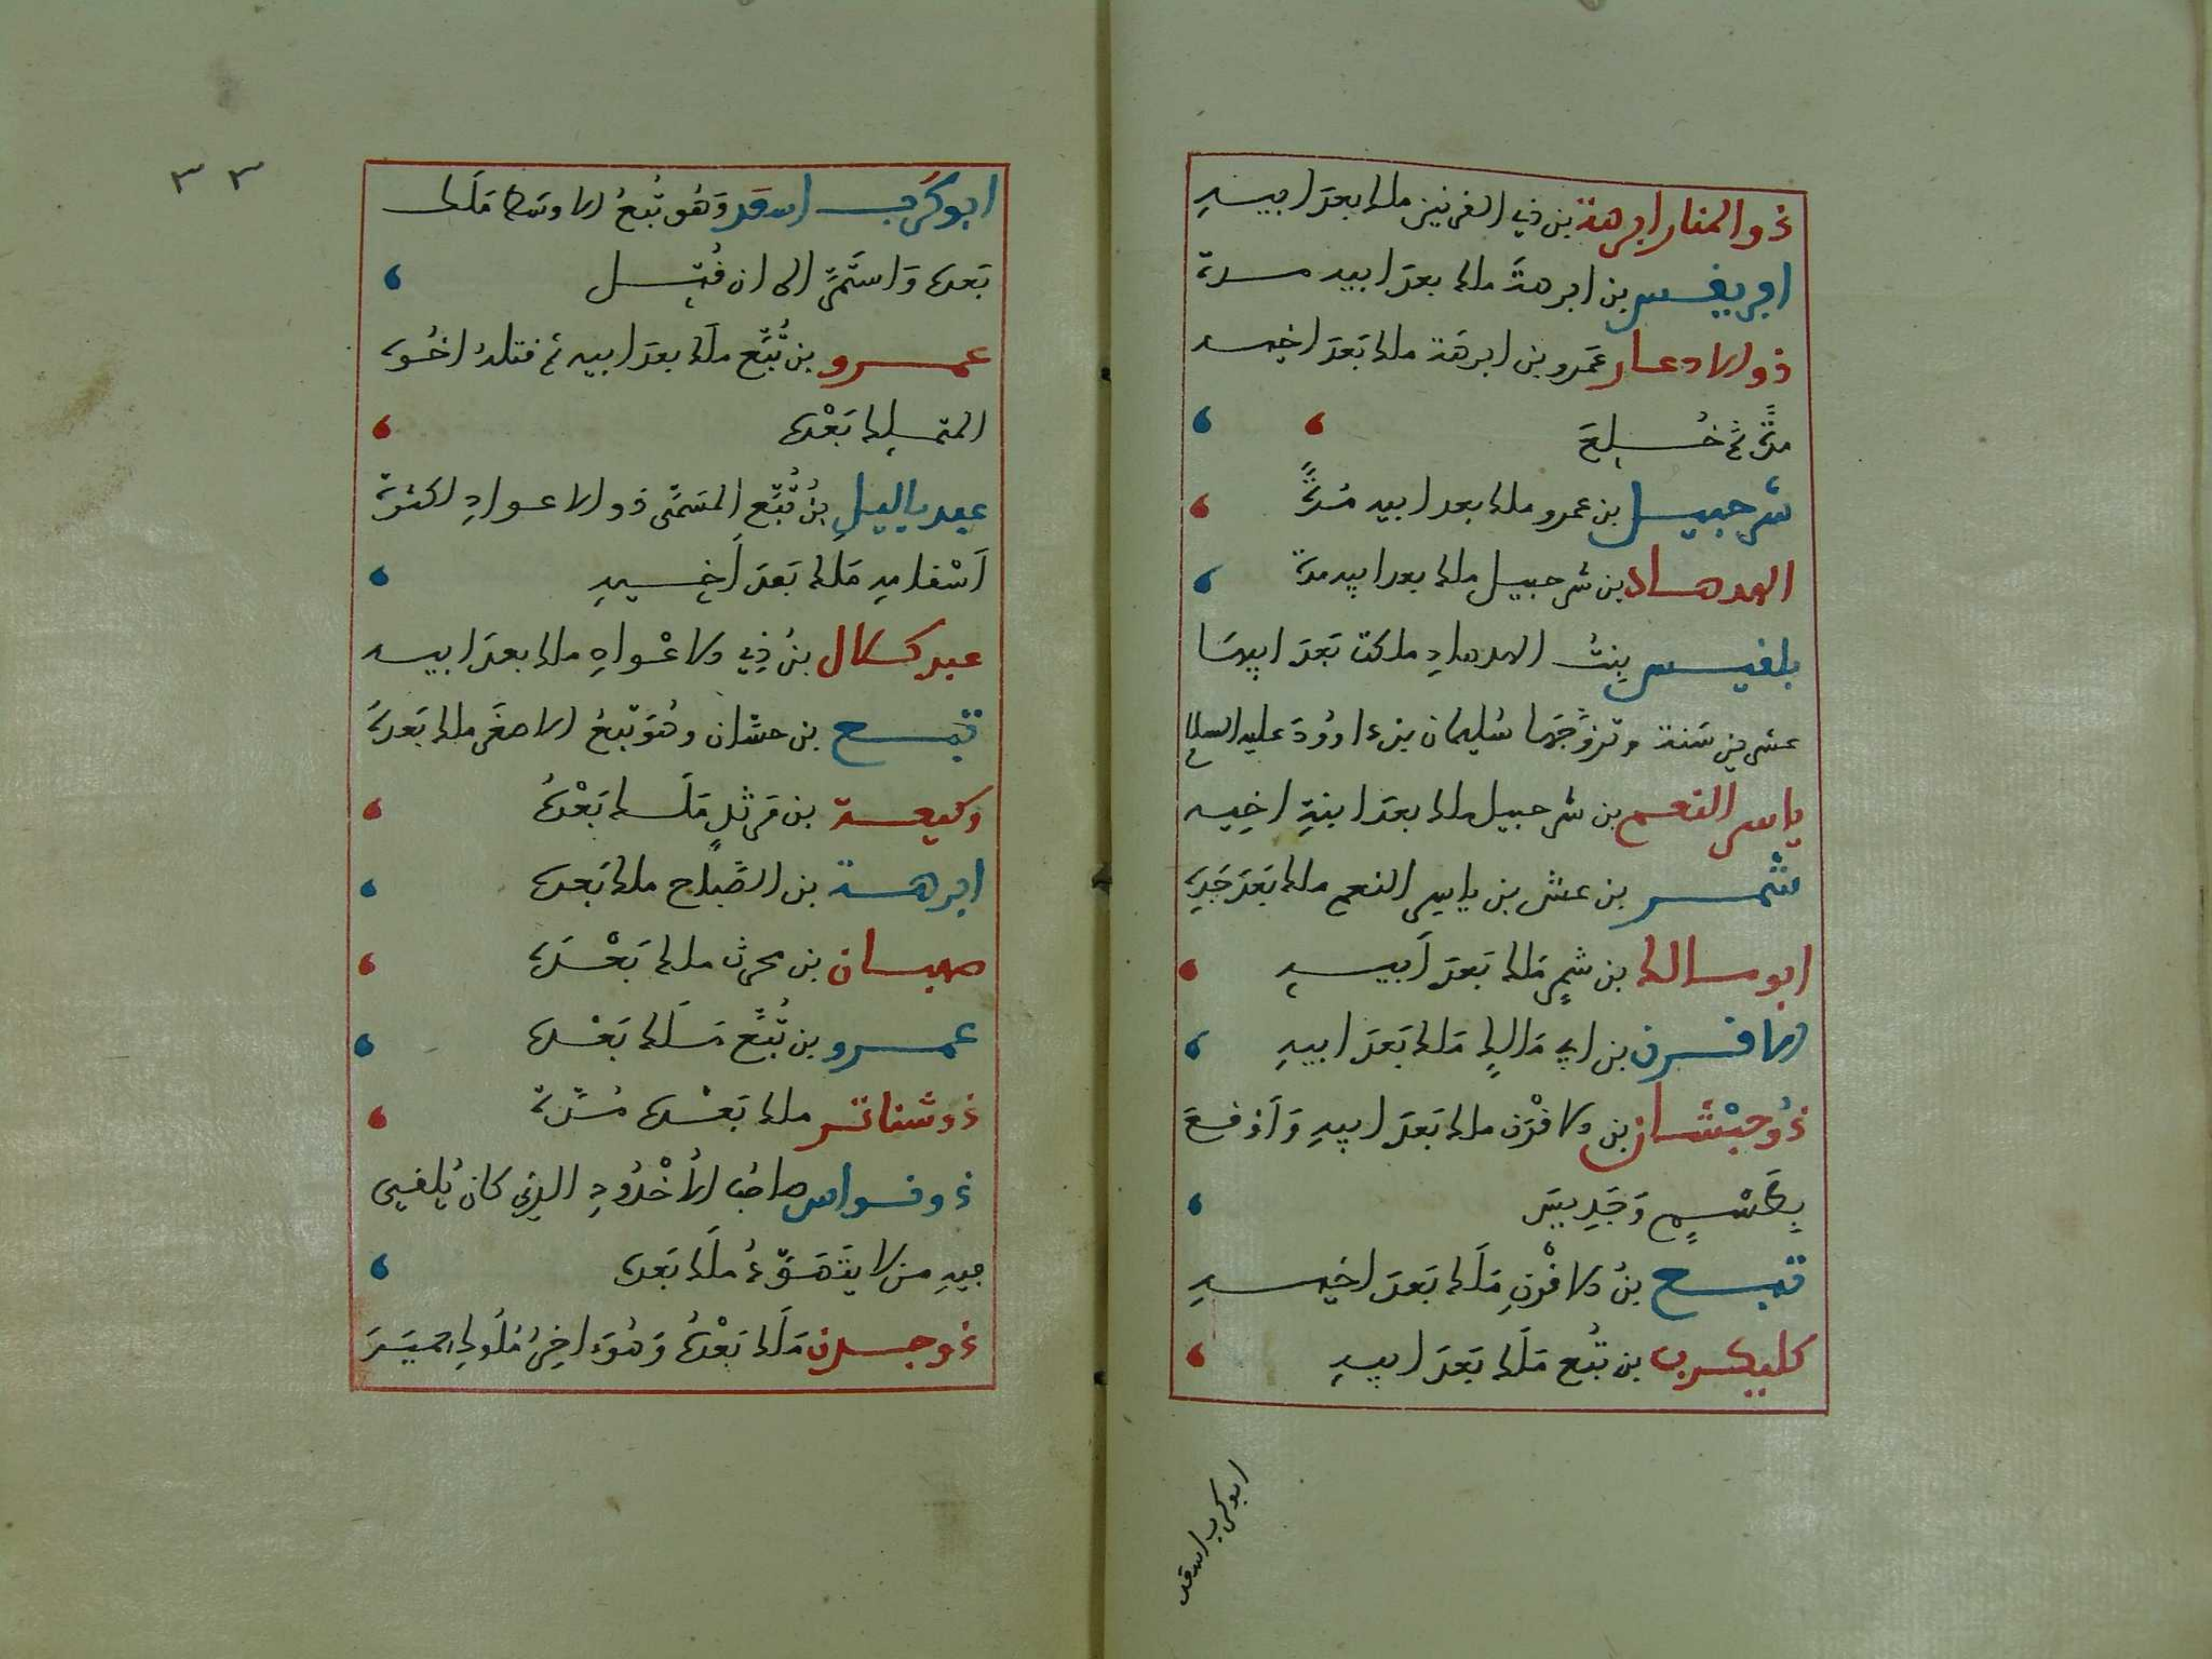 ذو المنار ابرهة بن ذي القرنين ملك بعد ابيه
افريقس بن ابرهة ملك بعد ابيه مدة
ذو الاذعار عمرو بن ابرهة ملك بعد اخيه
مدة ثم خلع
شرحبيل بن عمرو ملك بعد ابيه مُدةً
الهدهاد بن شرحبيل ملك بعد ابيه مدة
بلقيس بنت الهدهاد ملكت بَعدَ ابيها
عشرين سَنة وتزوَّجَها سُليمان بن داوُودَ عليه السلام
ياسر النعم بن شرحبيل ملك بعدَ ابنةِ اخيه
شمر بن عش بن ياسر النعم ملك بَعدَ جَدِّهِ
ابو مالك بن شمرٍ مَلك بَعدَ اَبيهِ
الاقرن بن ابي مَالكٍ مَلك بَعدَ ابيهِ
ذُو حَبْشَان بن الاقْرَن ملك بَعدَ ابيهِ وَاَوْقعَ
بِطَسْمٍ وَجَدِيسَ
تبع بنُ الاقْرنِ مَلَك بَعدَ اخيهِ
كليكرب بن تُبع مَلَك بَعدَ ابيهِ
ابو كرب اسعد
٣٣
ابو كَرب اسعد وَهُو تُبعُ الاوسَط مَلَك
بَعده وَاستَمَرَّ الى ان قُتِل
عمرو بن تُبَّع مَلَك بعدَ ابيه ثم قتلهُ اخُوه
المتملك بَعْدَهُ
عبد ياليل بنُ تُبَّع المسَمَّى ذو الاعواد لكثرة
اَسْفارهِ مَلك بَعدَ اَخيهِ
عبد كلال بنُ ذِي الاعْوادِ ملك بعدَ ابيه
تبع بن حسّان وهُوَ تُبعُ الاصغَر ملك بَعدهُ
وكيعة بن مَرثدٍ مَلَك بَعْدَهُ
ابرهة بن الصَّباح ملك بَعده
صهبان بن محرث ملك بَعْدَه
عمرو بن تُبَّع مَلَك بَعْده
ذو شناتر ملك بَعْده مُدّةً
ذو نواس صاحبُ الاُخْدُودِ الذي كان يُلقي
فيهِ من لا يَتَهَوَّدُ مَلَك بَعده
ذو جدن مَلَك بَعْدَهُ وَهُوَ اخِرُ مُلُوكِ حميَرَ